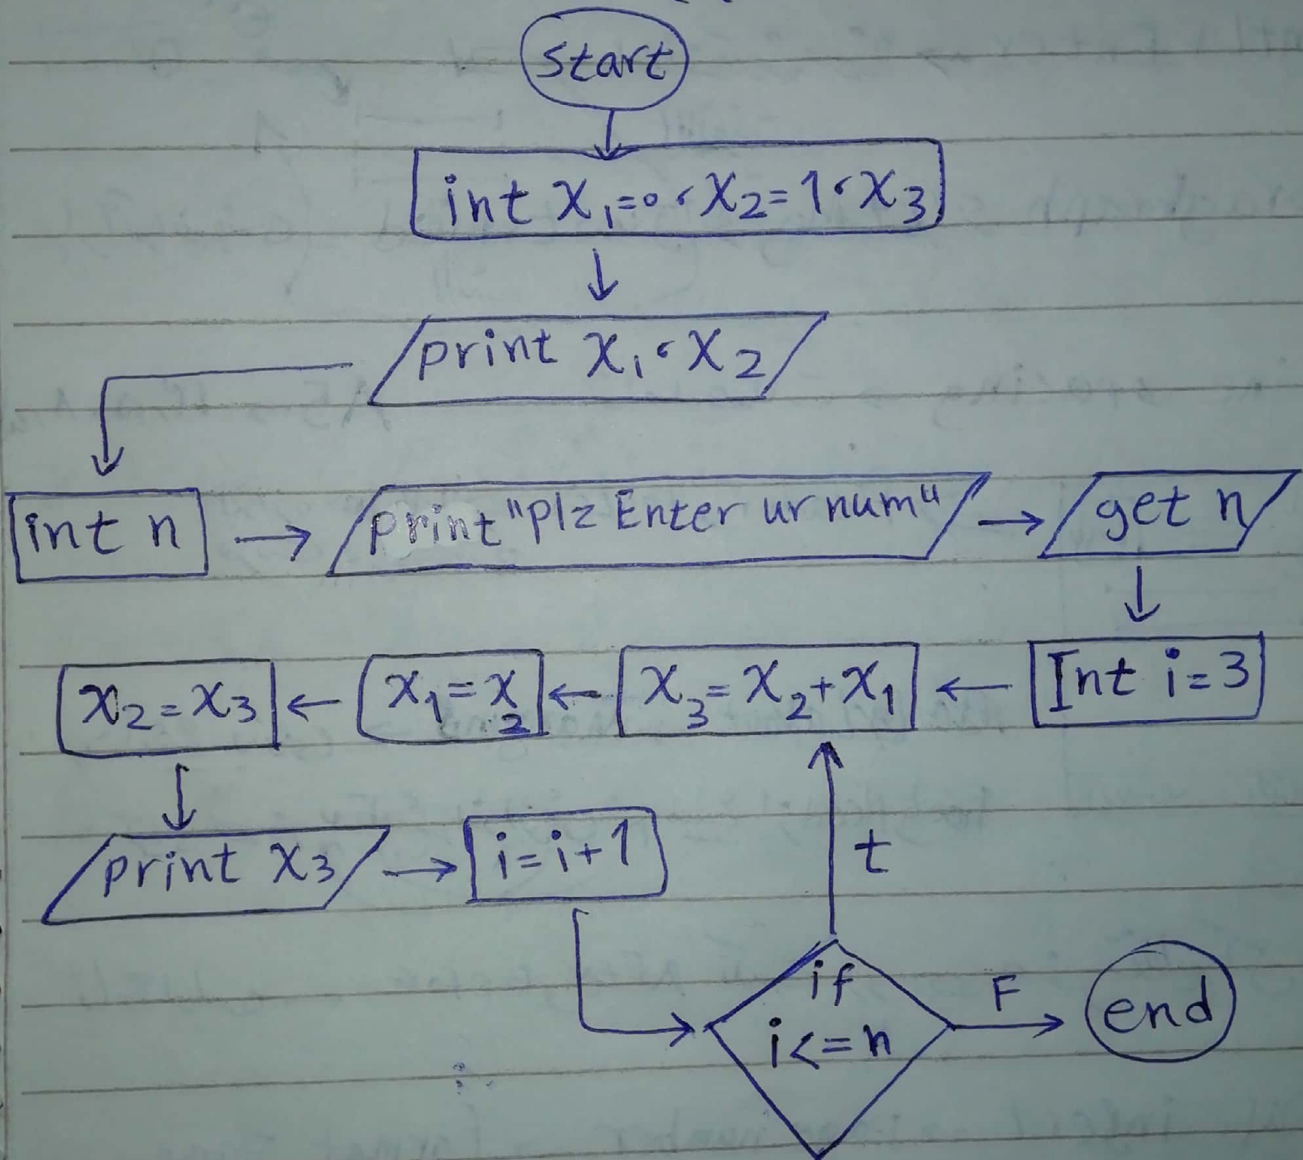 start
int x₁=0، x₂=1، x₃
print x₁، x₂
int n
print "plz Enter ur num"
get n
Int i=3
x₃=x₂+x₁
x₁=x₂
x₂=x₃
print x₃
i=i+1
t
if
i<=n
F
end